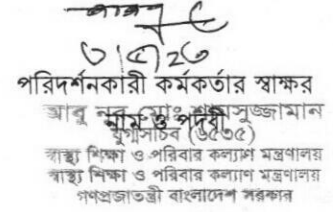 ৩|৫|২৩
পরিদর্শনকারী কর্মকর্তার স্বাক্ষর
আবু নূর মোঃ শামসুজ্জামান
নাম ও পদবী
যুগ্মসচিব (৬৫৩৫)
স্বাস্থ্য শিক্ষা ও পরিবার কল্যাণ মন্ত্রণালয়
স্বাস্থ্য শিক্ষা ও পরিবার কল্যাণ মন্ত্রণালয়
গণপ্রজাতন্ত্রী বাংলাদেশ সরকার